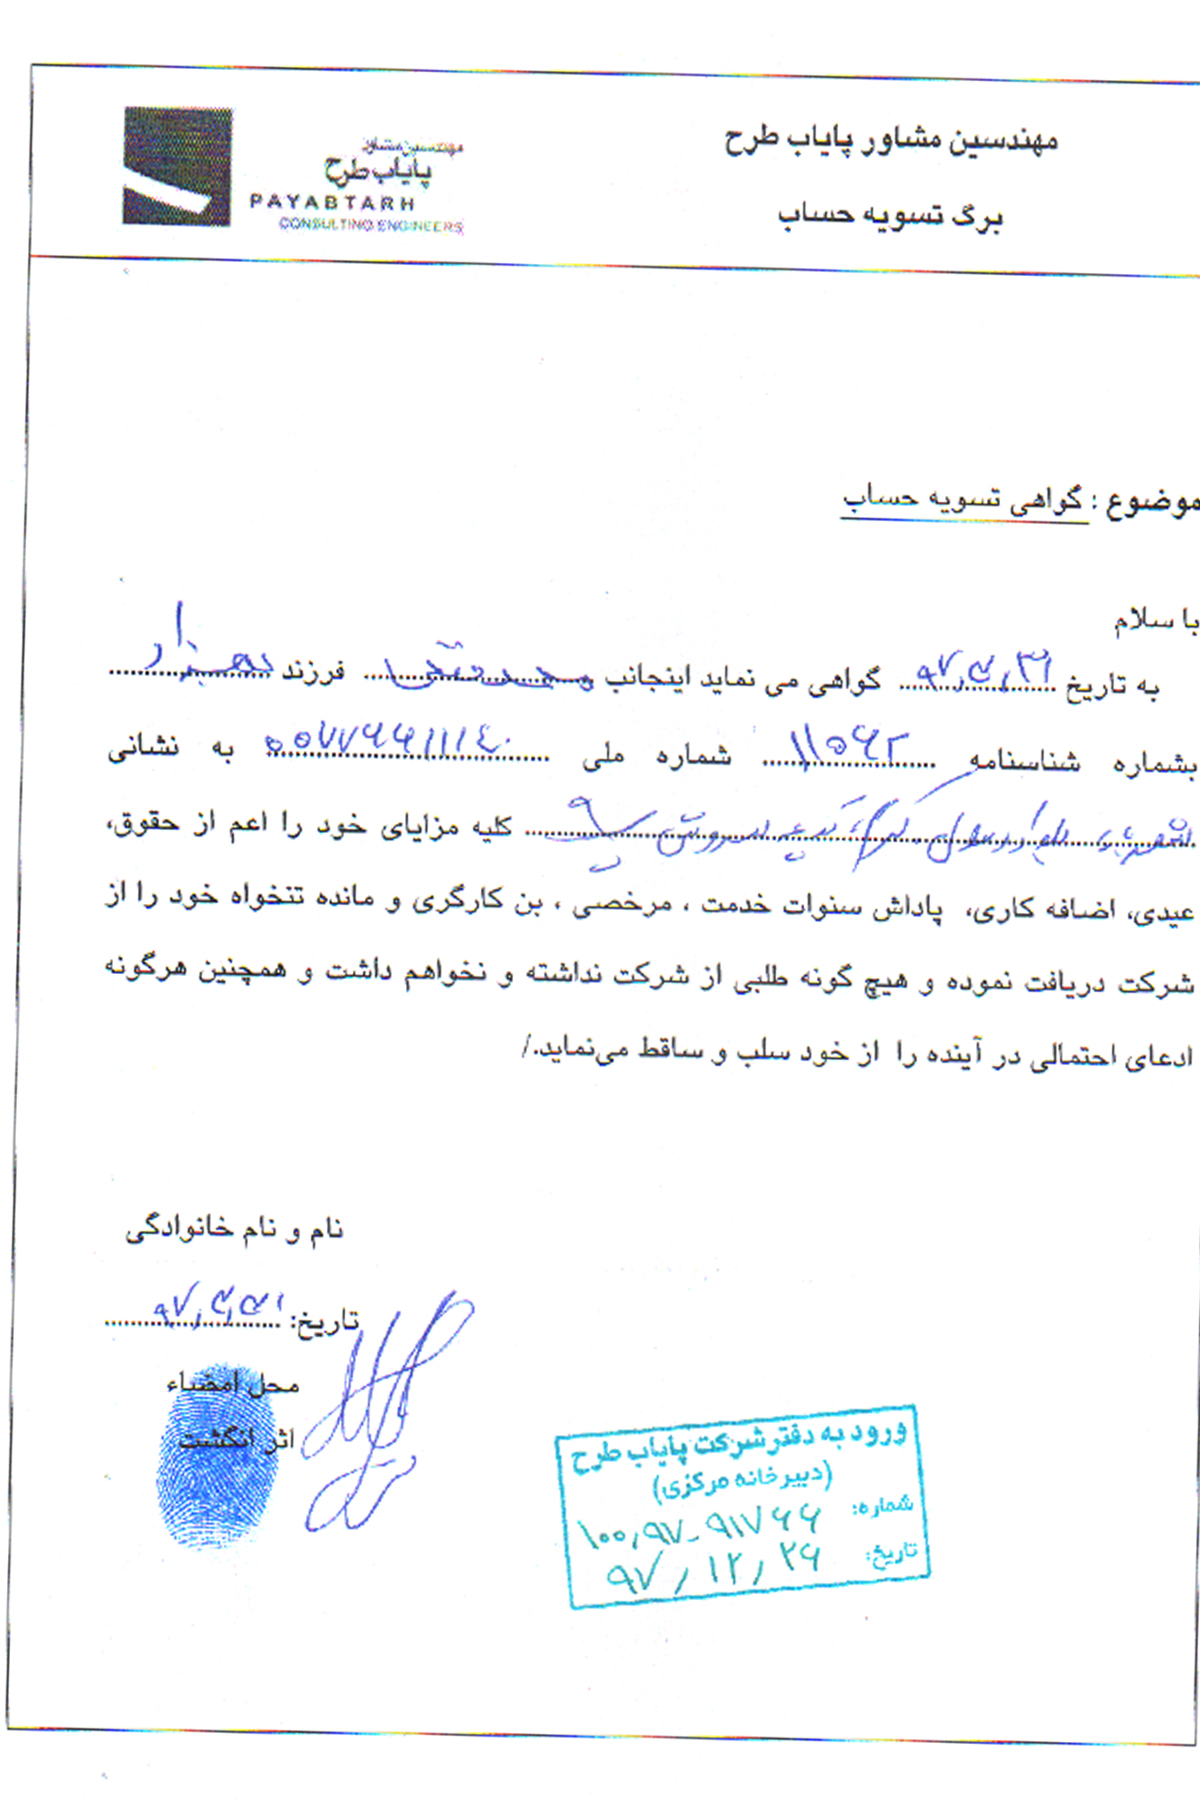 مهندسین مشاور پایاب طرح
برگ تسویه حساب
مهندسین مشاور
پایاب طرح
PAYABTARH
CONSULTING ENGINEERS
موضوع : گواهی تسویه حساب
با سلام
به تاریخ گواهی می نماید اینجانب فرزند
بشماره شناسنامه ۱۱۵۶۲ شماره ملی به نشانی
کلیه مزایای خود را اعم از حقوق،
عیدی، اضافه کاری، پاداش سنوات خدمت ، مرخصی ، بن کارگری و مانده تنخواه خود را از
شرکت دریافت نموده و هیچ گونه طلبی از شرکت نداشته و نخواهم داشت و همچنین هرگونه
ادعای احتمالی در آینده را از خود سلب و ساقط می‌نماید./
نام و نام خانوادگی
تاریخ:
محل امضاء
اثر انگشت
ورود به دفتر شرکت پایاب طرح
(دبیرخانه مرکزی)
شماره: ۱۰۰,۹۷-۹۱۷۶۶
تاریخ: ۹۷/۱۲/۲۶